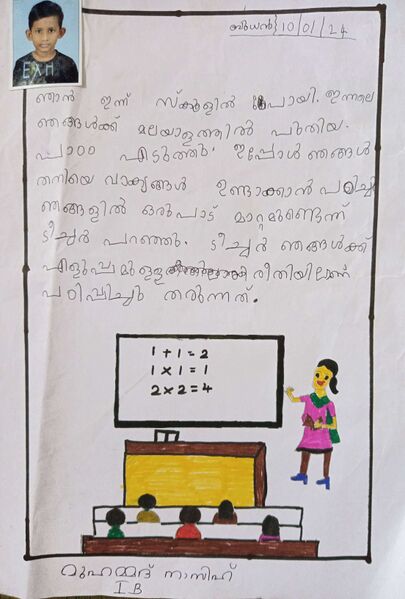 ബുധൻ} 10/01/24
ഞാൻ ഇന്ന് സ്ക്കൂളിൽ പോയി. ഇന്നലെ
ഞങ്ങൾക്ക് മലയാളത്തിൽ പുതിയ.
പാഠം എടുത്തു. ഇപ്പോൾ ഞങ്ങൾ
തനിയെ വാക്യങ്ങൾ ഉണ്ടാക്കാൻ പഠിച്ചു
ഞങ്ങളിൽ ഒരുപാട് മാറ്റമുണ്ടെന്ന്
ടീച്ചർ പറഞ്ഞു. ടീച്ചർ ഞങ്ങൾക്ക്
എളുപ്പമുള്ള രീതിയിലാണ്
പഠിപ്പിച്ചു തരുന്നത്.
1 + 1 = 2
1 x 1 = 1
2 x 2 = 4
മുഹമ്മദ് നാസിഹ്
I B